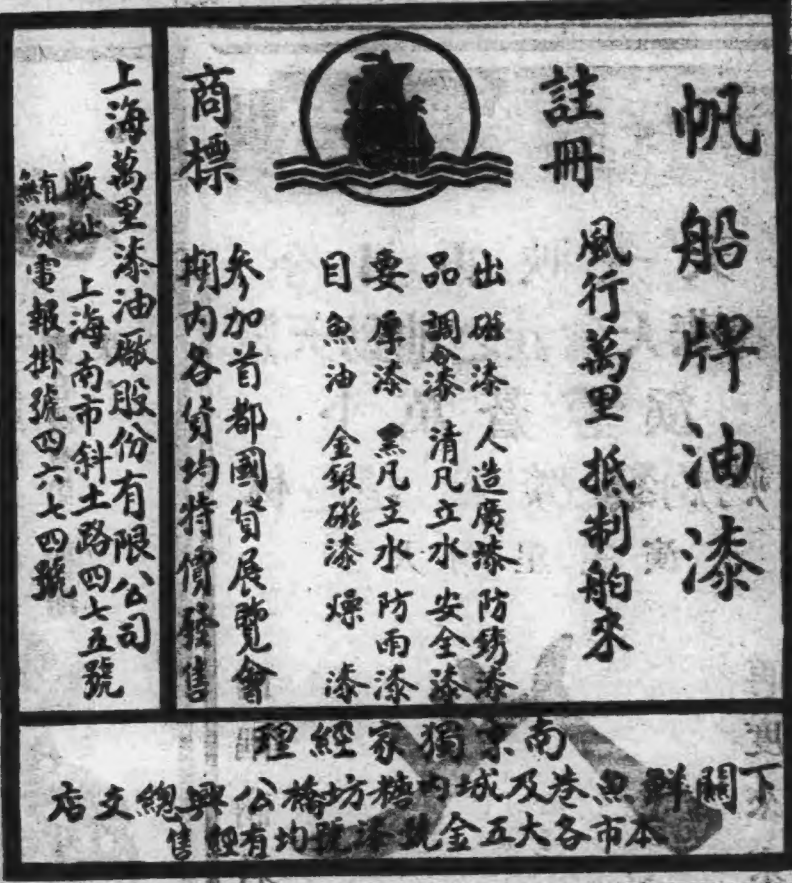 帆船牌油漆
註冊
商標
風行萬里 抵制舶來
出品要目
磁漆 人造廣漆 防銹漆
調合漆 清凡立水 安全漆
厚漆 黑凡立水 防雨漆
魚油 金銀磁漆 燥漆
參加首都國貨展覽會
期內各貨均特價發售
上海萬里漆油廠股份有限公司
廠址 上海南市斜土路四七五號
有線無線電報掛號四六七四號
南京獨家經理
下關鮮魚巷及城內糖坊橋公興總支店
本市各大五金號漆號均有經售